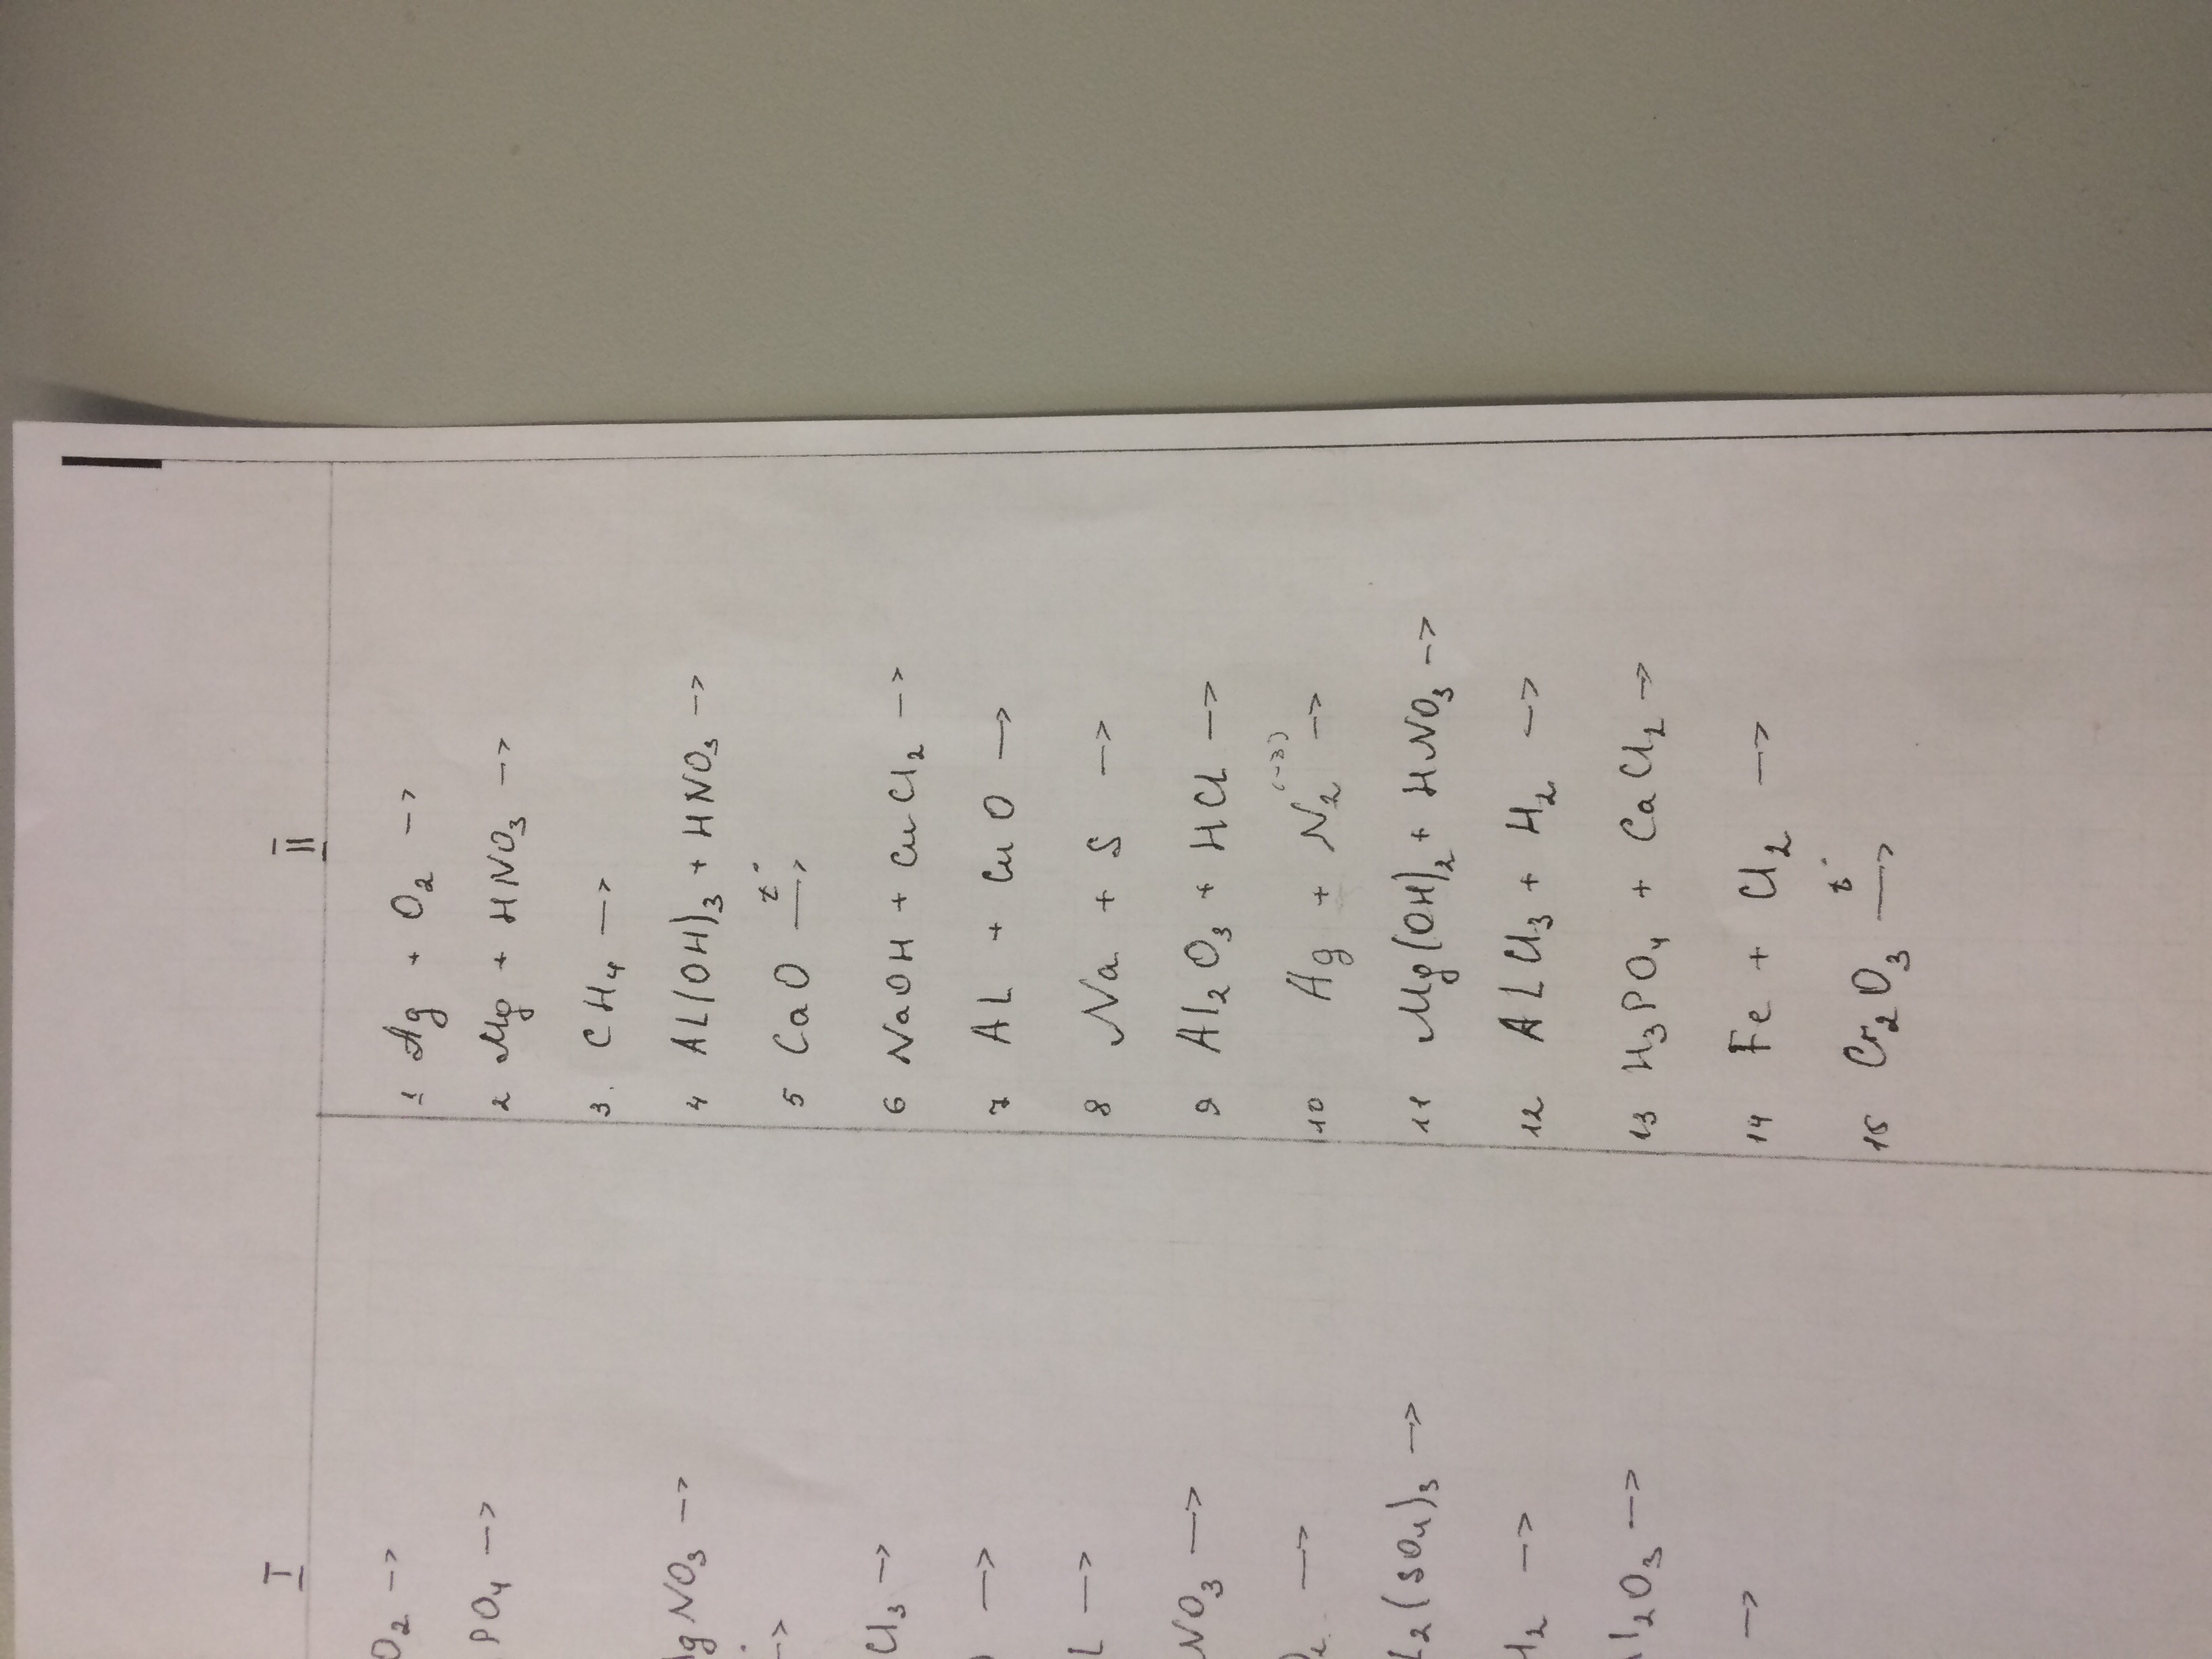 I
O₂ →
PO₄ →
gNO₃ →
→
Cl₃ →
→
L →
NO₃ →
→
L₂(SO₄)₃ →
H₂ →
l₂O₃ →
→
II
1 Ag + O₂ →
2 Mg + HNO₃ →
3. CH₄ →
4 AL(OH)₃ + HNO₃ →
5 CaO t° →
6 NaOH + CuCl₂ →
7 AL + CuO →
8 Na + S →
9 Al₂O₃ + HCl →
10 Ag + N₂(-3) →
11 Mg(OH)₂ + HNO₃ →
12 ALCl₃ + H₂ →
13 H₃PO₄ + CaCl₂ →
14 Fe + Cl₂ →
15 Cr₂O₃ t° →